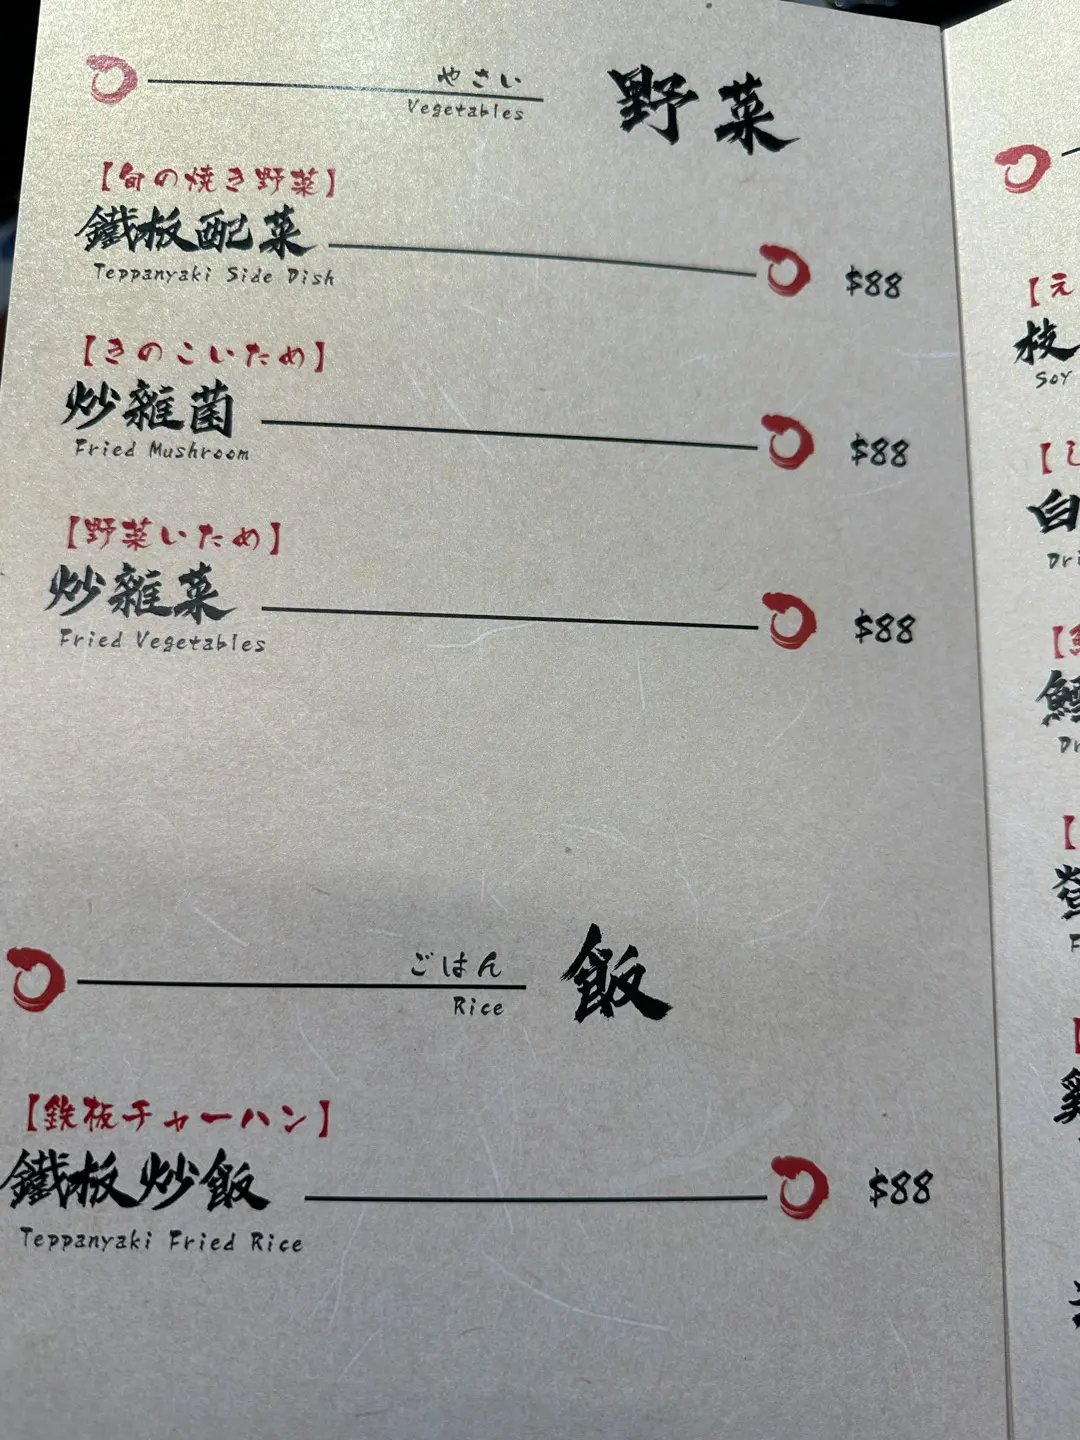 やさい
Vegetables
野菜
【旬の焼き野菜】
鐵板配菜
$88
Teppanyaki Side Dish
【きのこいため】
炒雜菌
$88
Fried Mushroom
【野菜いため】
炒雜菜
$88
Fried Vegetables
ごはん
Rice
飯
【鉄板チャーハン】
鐵板炒飯
$88
Teppanyaki Fried Rice
【え
枝
Soy
【し
白
Dri